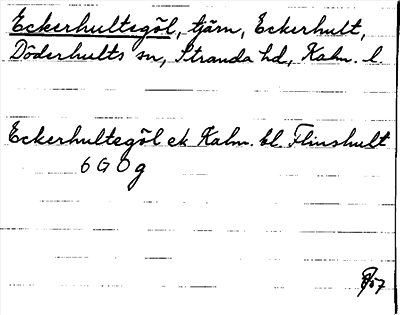 Eckerhultegöl, tjärn, Eckerhult,
Döderhults sn, Stranda hd, Kalm. l.
Eckerhultegöl ek Kalm. bl. Flinshult
6 G O g
57